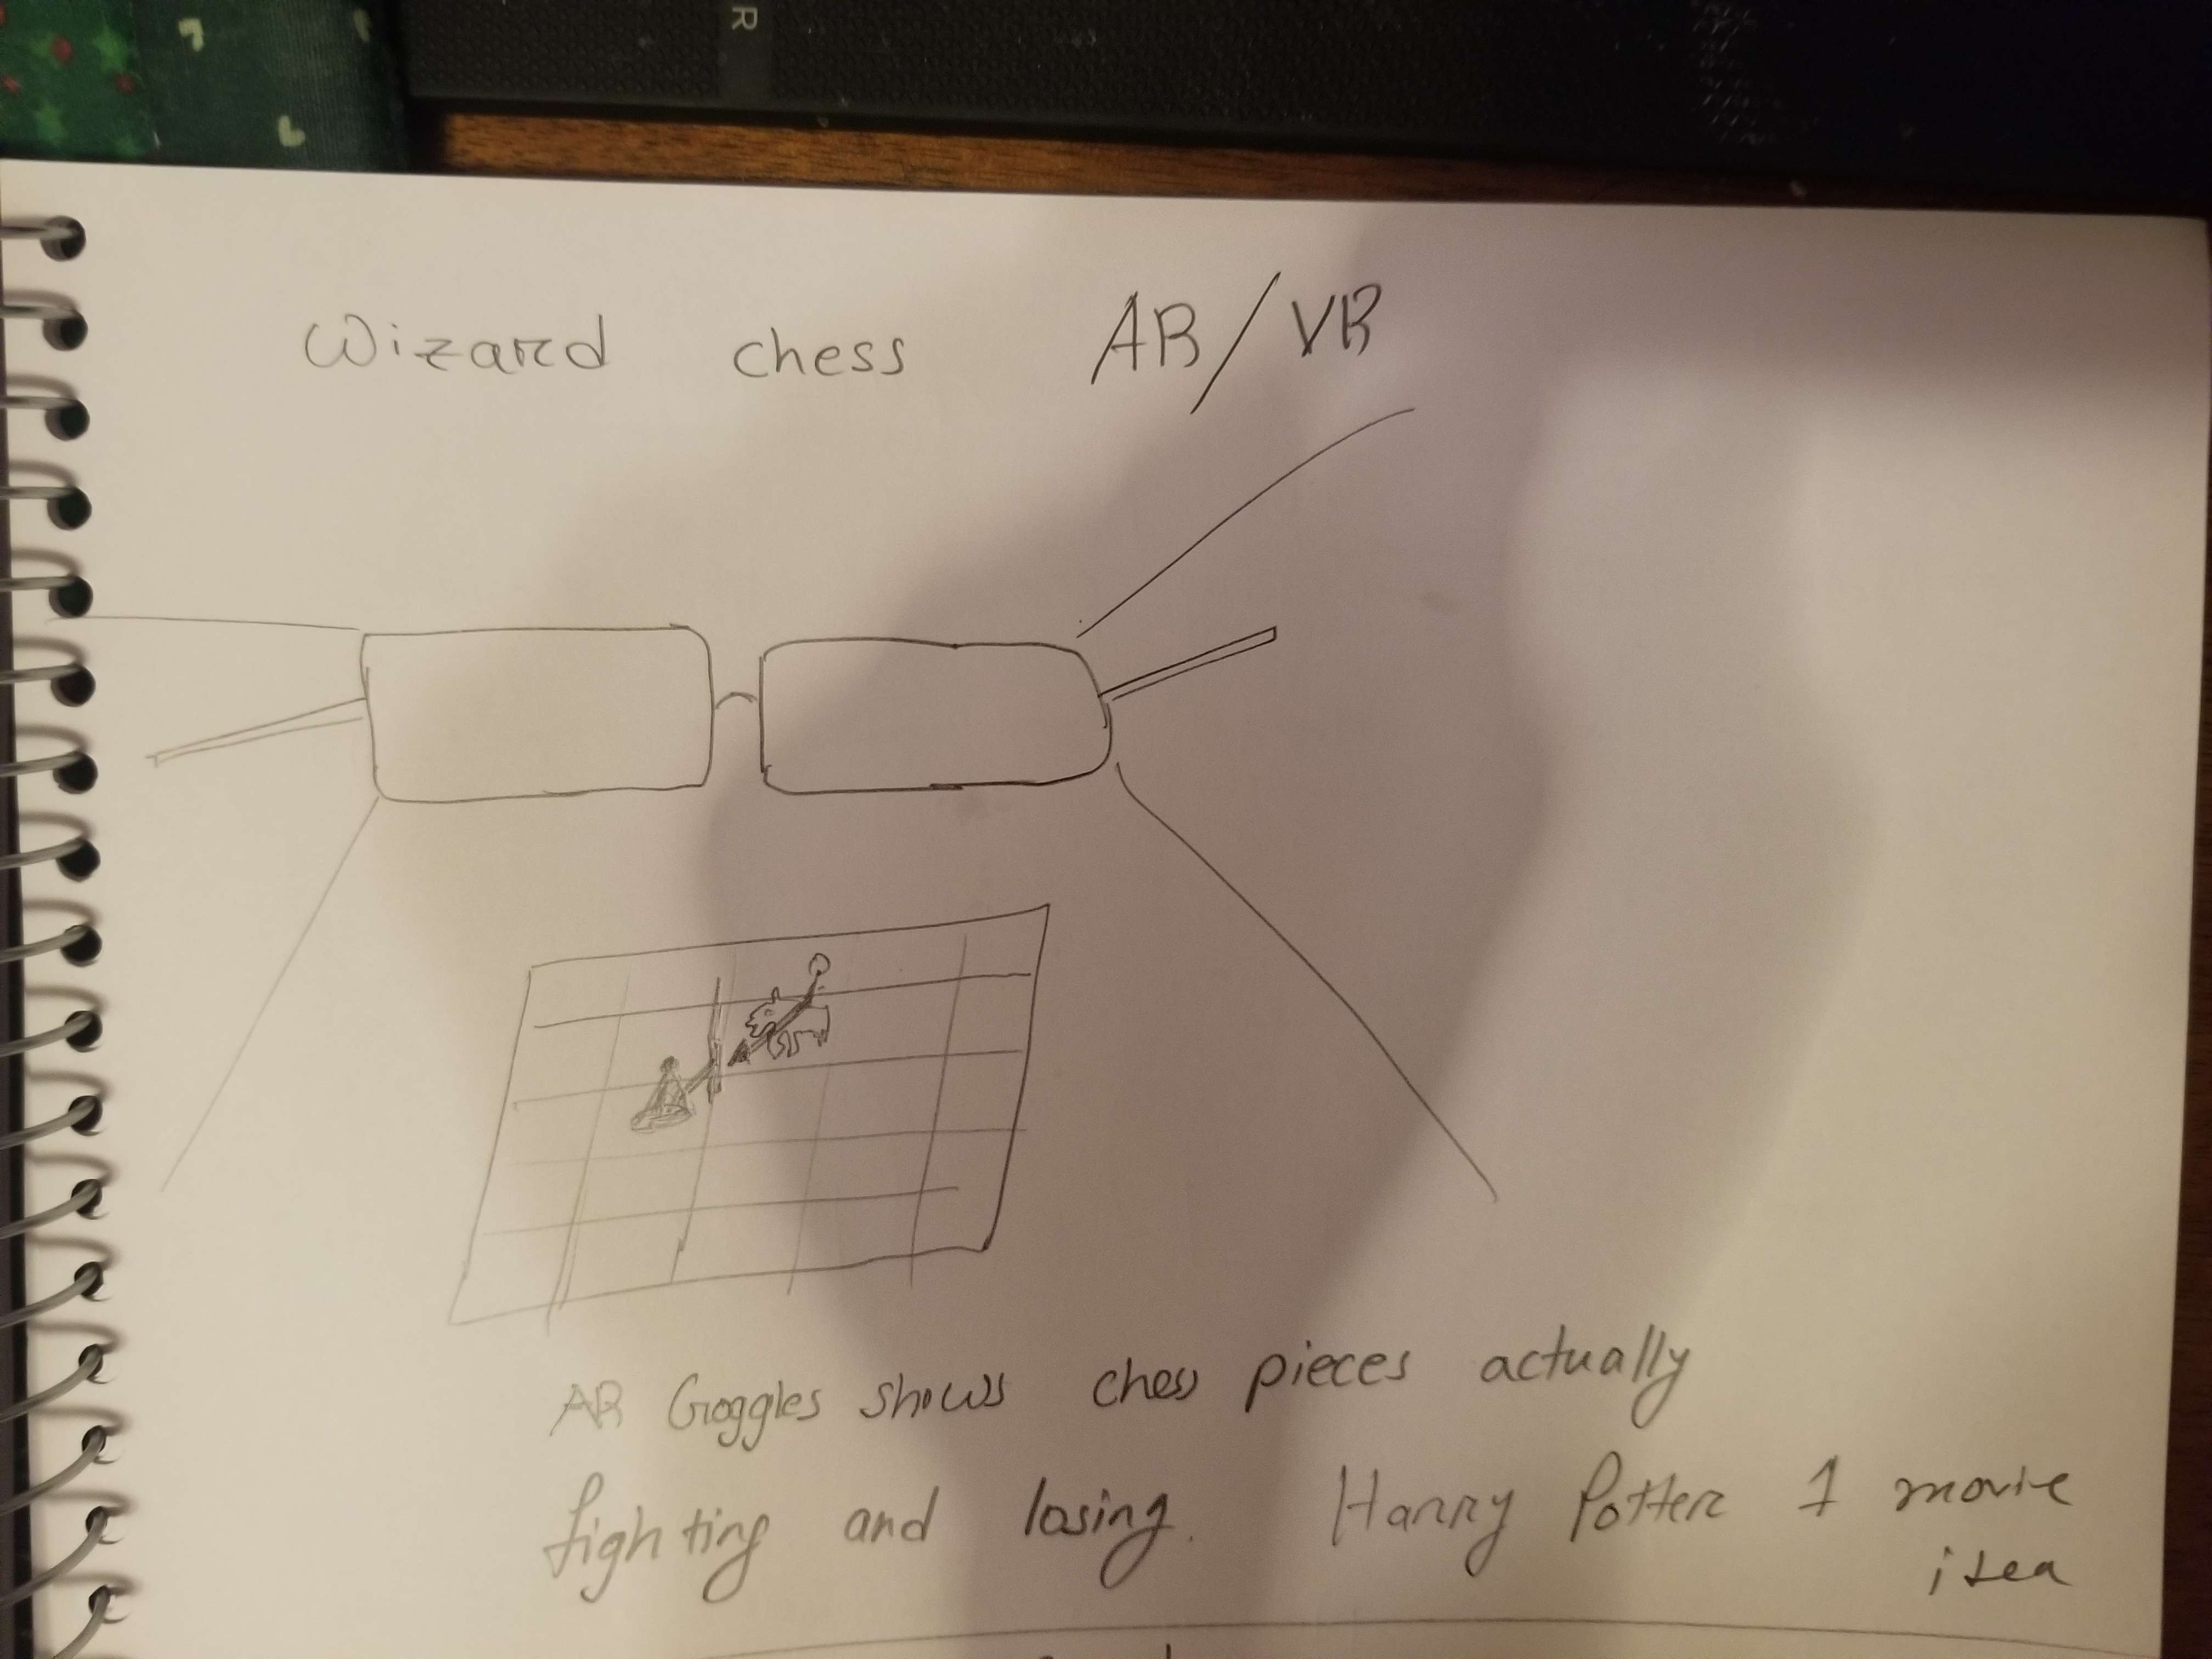 R
Wizard chess AR/VR
AR Goggles shows chess pieces actually
fighting and losing. Harry Potter 1 movie
idea